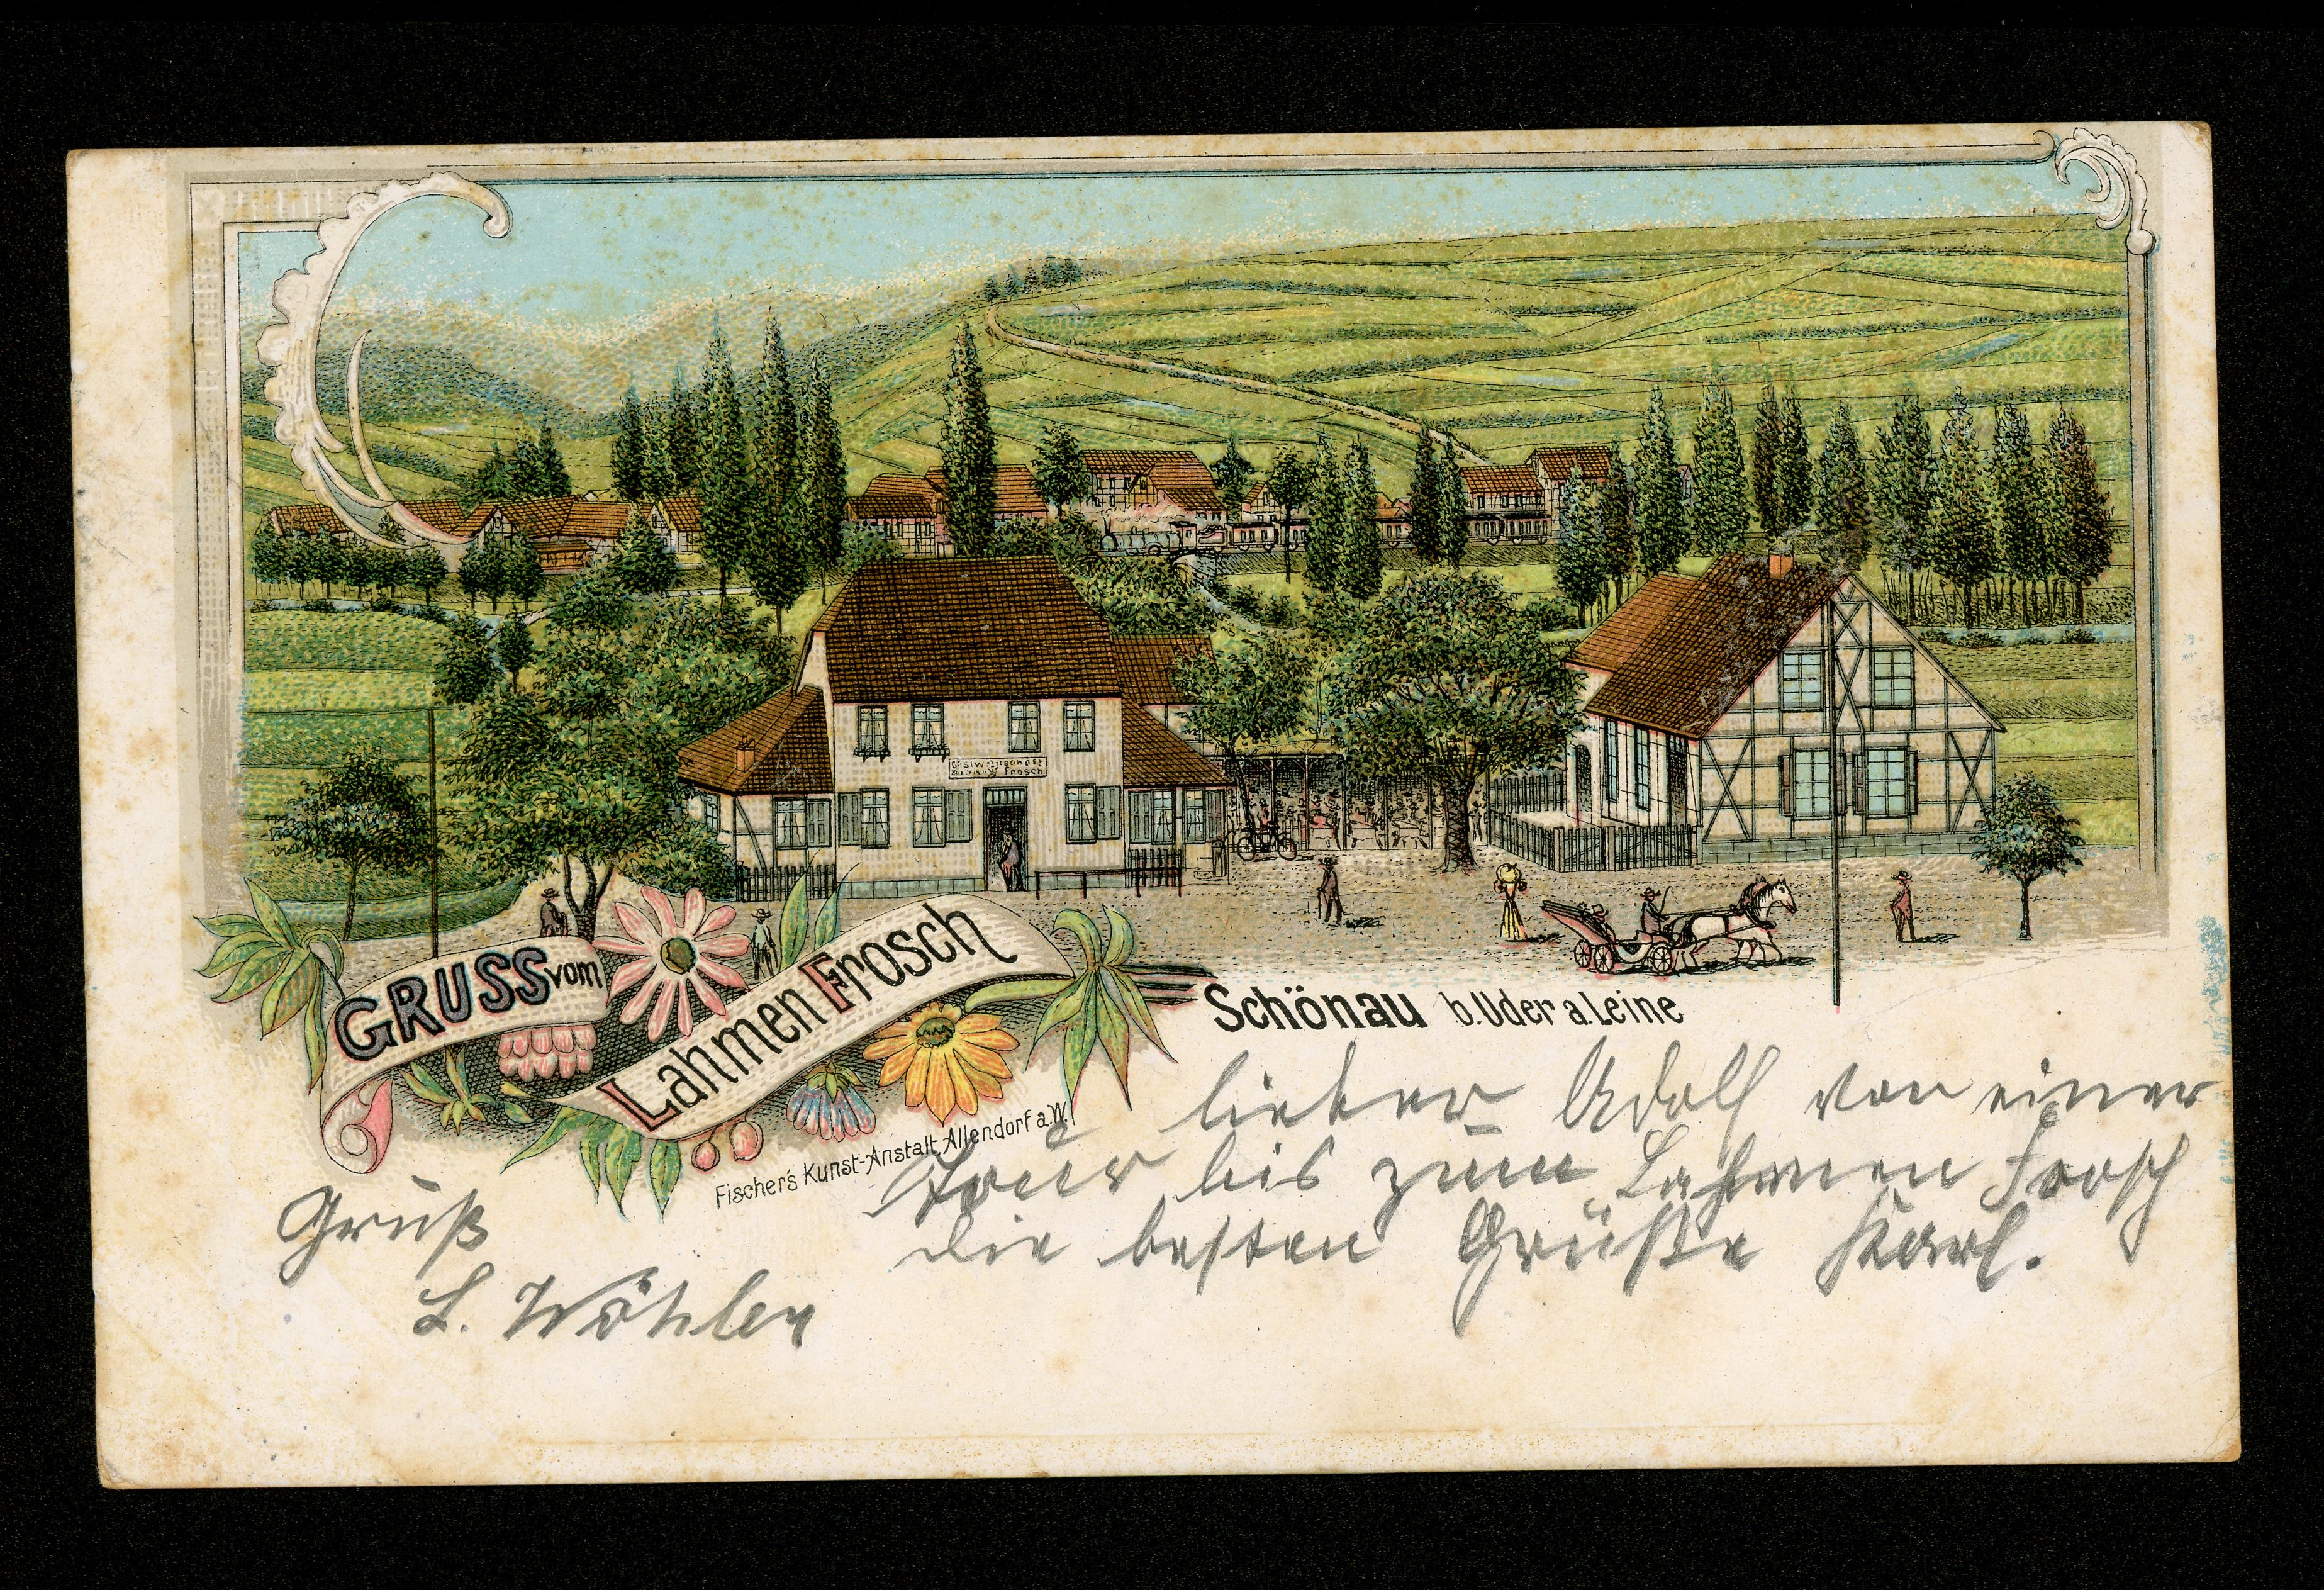 Gastwirtschaft
Frosch
GRUSS vom
Lahmen Frosch
Schönau b. Uder a. Leine
Fischer's Kunst-Anstalt, Allendorf a. W.
lieber Adolf von einer
Tour bis zum Lahmen Frosch
die besten Grüße Karl.
Gruß
L. Wöhler